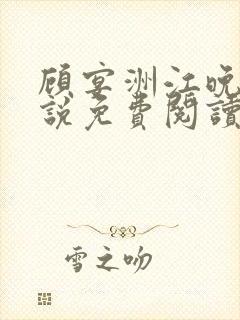 顾宴洲江晚
說免費閱讀
雪之吻